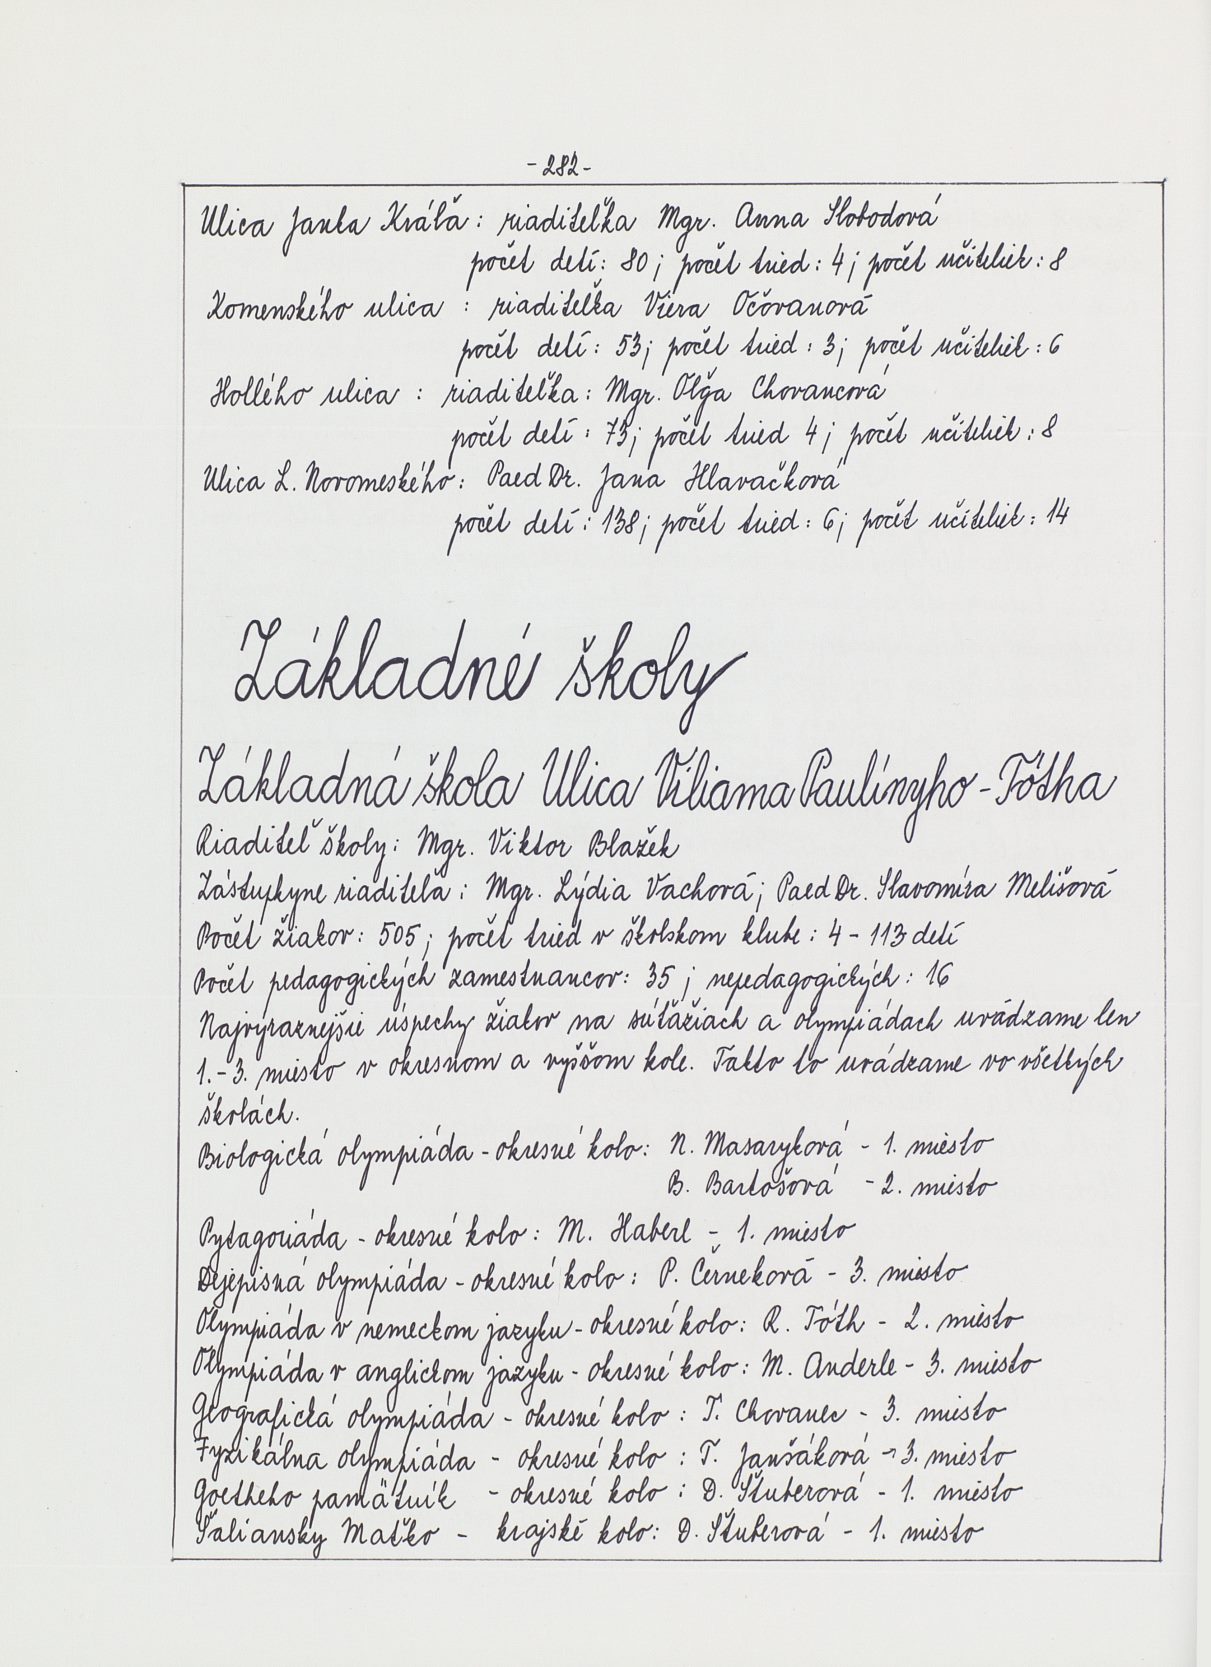 - 282 -
Ulica Janka Kráľa : riaditeľka Mgr. Anna Slobodová
počet detí : 80 ; počet tried : 4 ; počet učiteliek : 8
Komenského ulica : riaditeľka Viera Očovanová
počet detí : 53 ; počet tried : 3 ; počet učiteliek : 6
Hollého ulica : riaditeľka : Mgr. Oľga Chovancová
počet detí : 73 ; počet tried 4 ; počet učiteliek : 8
Ulica L. Novomeského : PaedDr. Jana Hlavačková
počet detí : 138 ; počet tried : 6 ; počet učiteliek : 14
Základné školy
Základná škola Ulica Viliama Paulínyho - Tótha
Riaditeľ školy : Mgr. Viktor Blažek
Zástupkyne riaditeľa : Mgr. Lýdia Vachová ; PaedDr. Slavomíra Melišová
Počet žiakov : 505 ; počet tried v školskom klube : 4 - 113 detí
Počet pedagogických zamestnancov : 35 ; nepedagogických : 16
Najvýraznejšie úspechy žiakov na súťažiach a olympiádach uvádzame len
1. - 3. miesto v okresnom a vyššom kole. Takto to uvádzame vo všetkých
školách.
Biologická olympiáda - okresné kolo : N. Masaryková - 1. miesto
B. Bartošová - 2. miesto
Pytagoriáda - okresné kolo : M. Haberl - 1. miesto
Dejepisná olympiáda - okresné kolo : P. Černeková - 3. miesto
Olympiáda v nemeckom jazyku - okresné kolo : R. Tóth - 2. miesto
Olympiáda v anglickom jazyku - okresné kolo : M. Anderle - 3. miesto
Geografická olympiáda - okresné kolo : T. Chovanec - 3. miesto
Fyzikálna olympiáda - okresné kolo : T. Janšáková - 3. miesto
Goetheho pamätník - okresné kolo : D. Štuberová - 1. miesto
Šaliansky Maťko - krajské kolo : D. Štuberová - 1. miesto